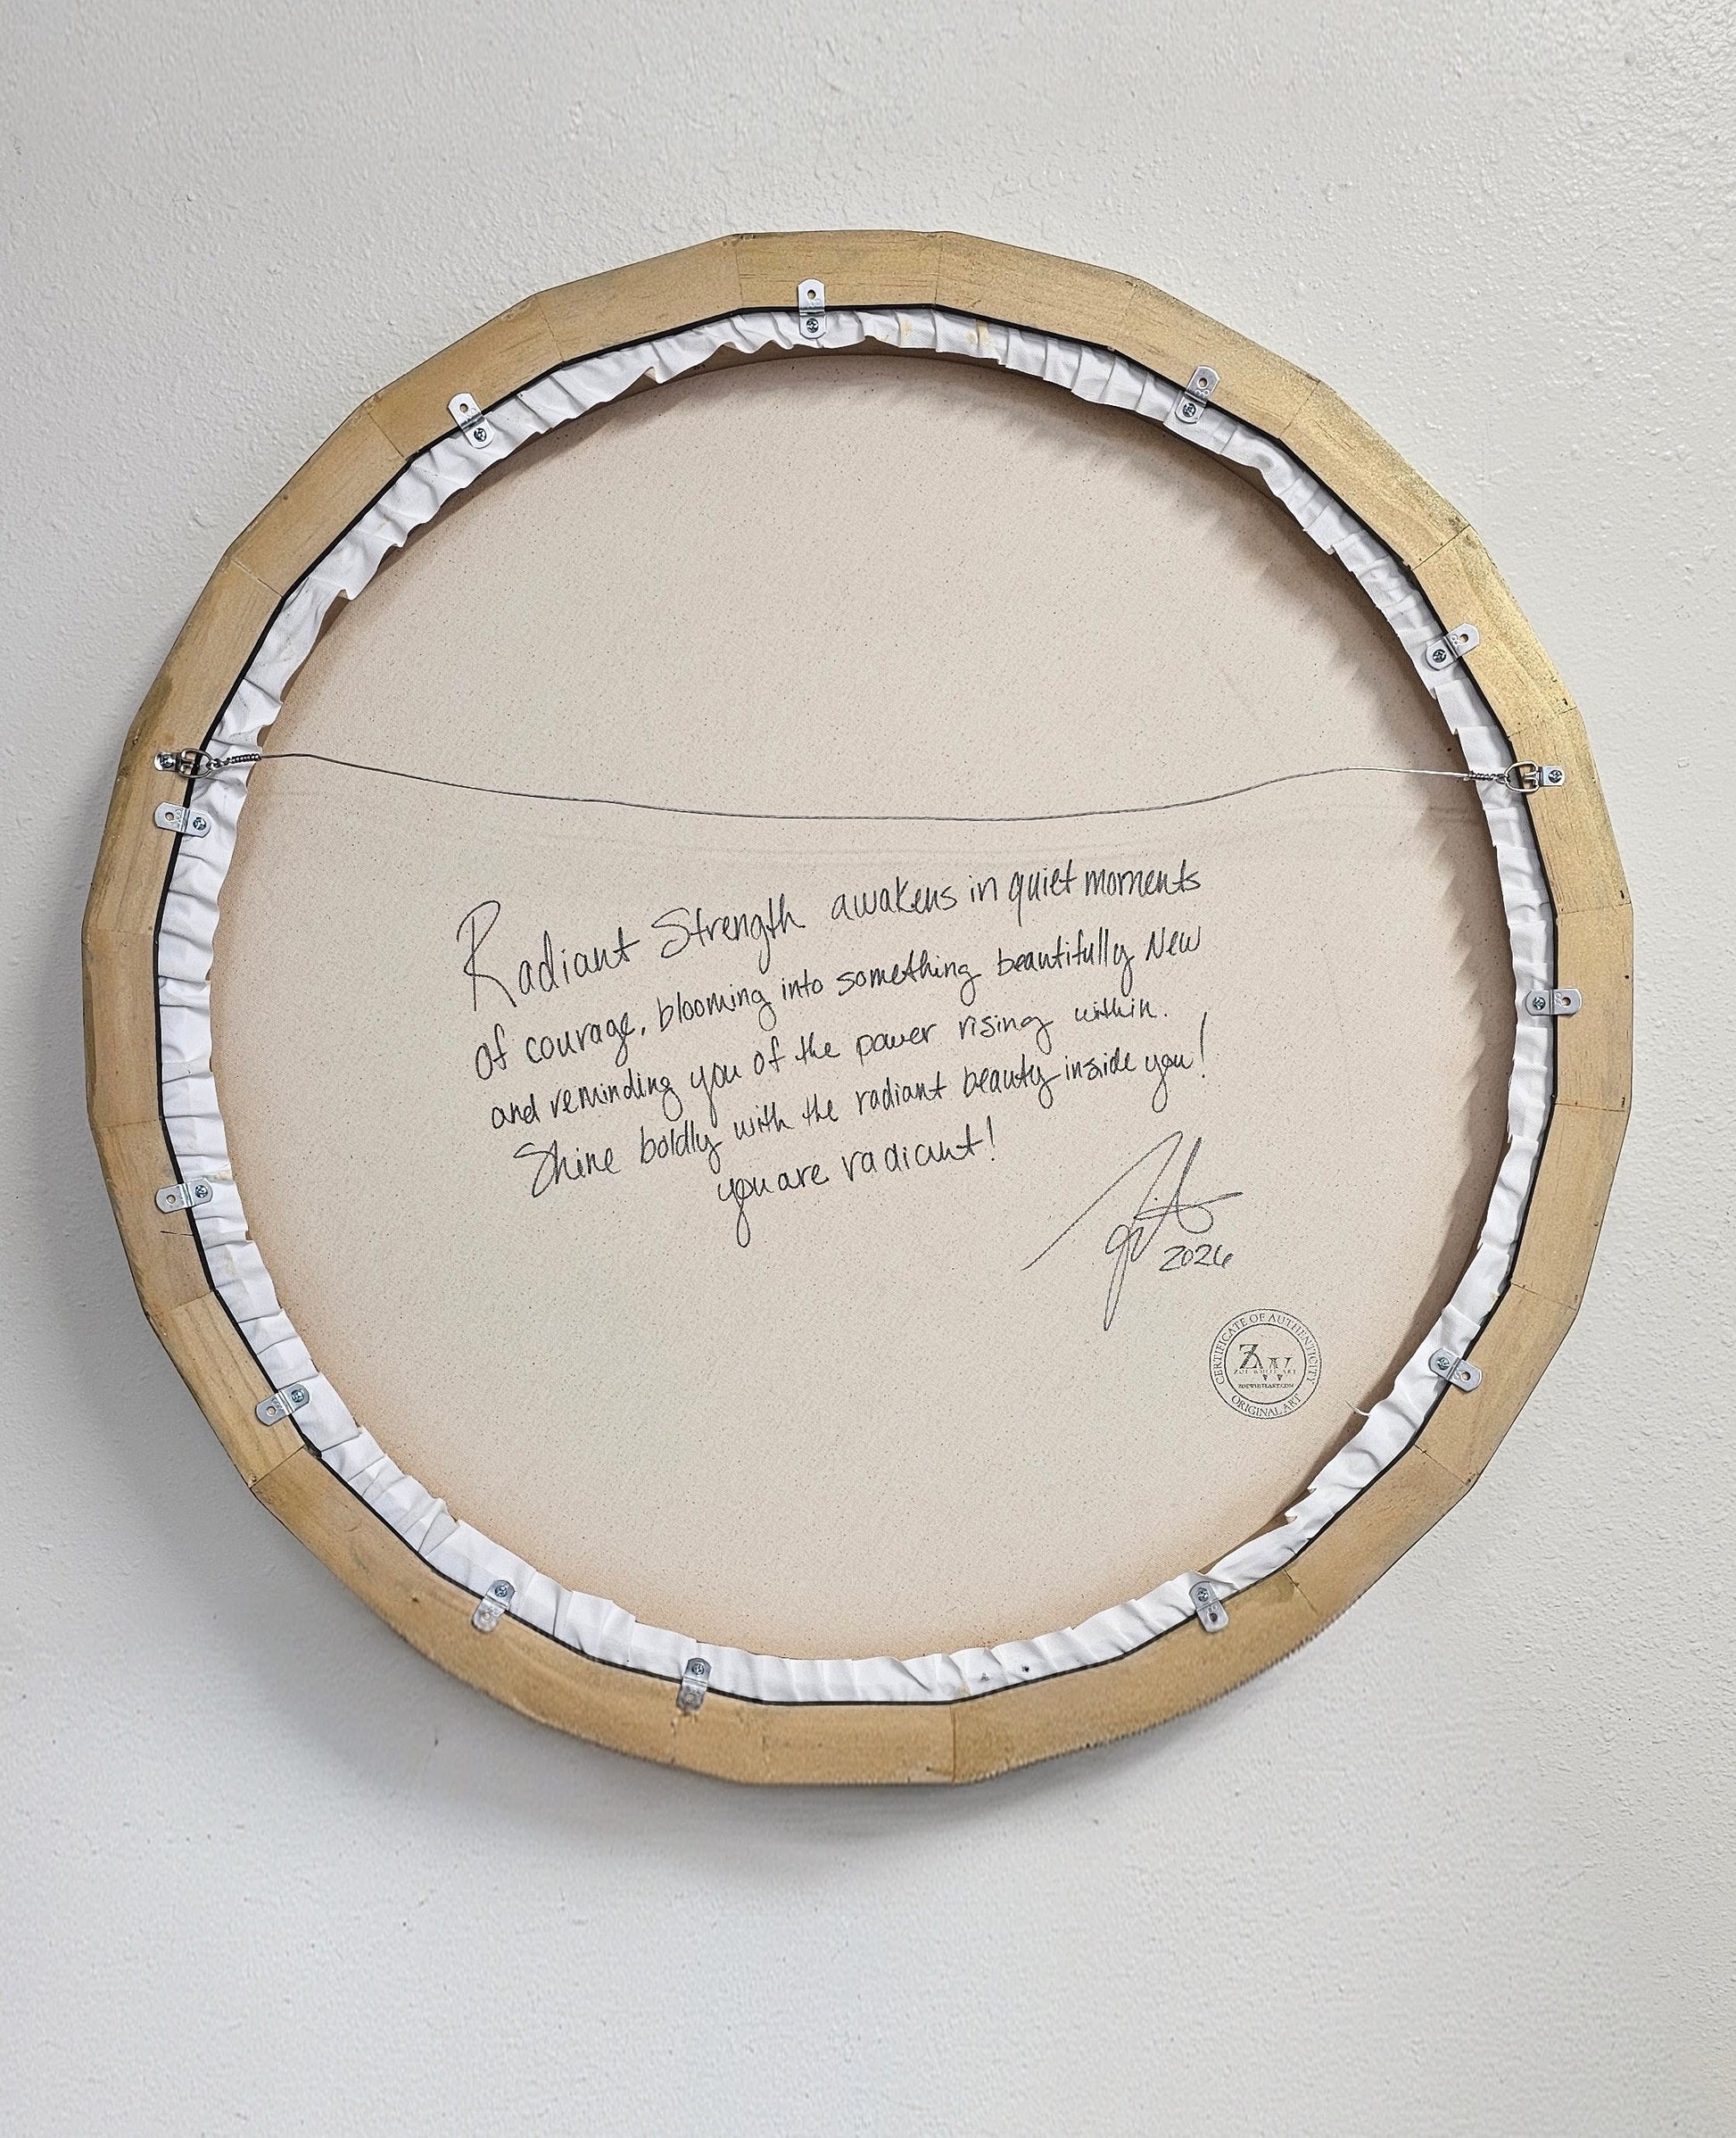 Radiant Strength awakens in quiet moments
of courage, blooming into something beautifully New
and reminding you of the power rising within.
Shine boldly with the radiant beauty inside you!
you are radiant!
2026
CERTIFICATE OF AUTHENTICITY
ZW
ZOE WHITE ART
ZOEWHITEART.COM
ORIGINAL ART